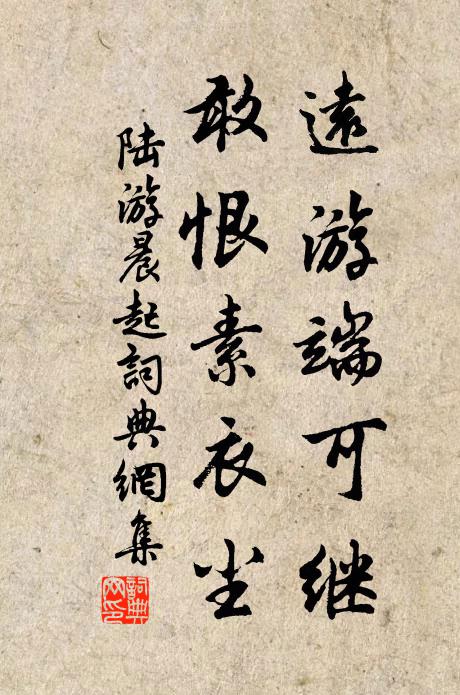 遠游端可继
敢恨素衣尘
陆游晨起詞典網集
詞典
网印